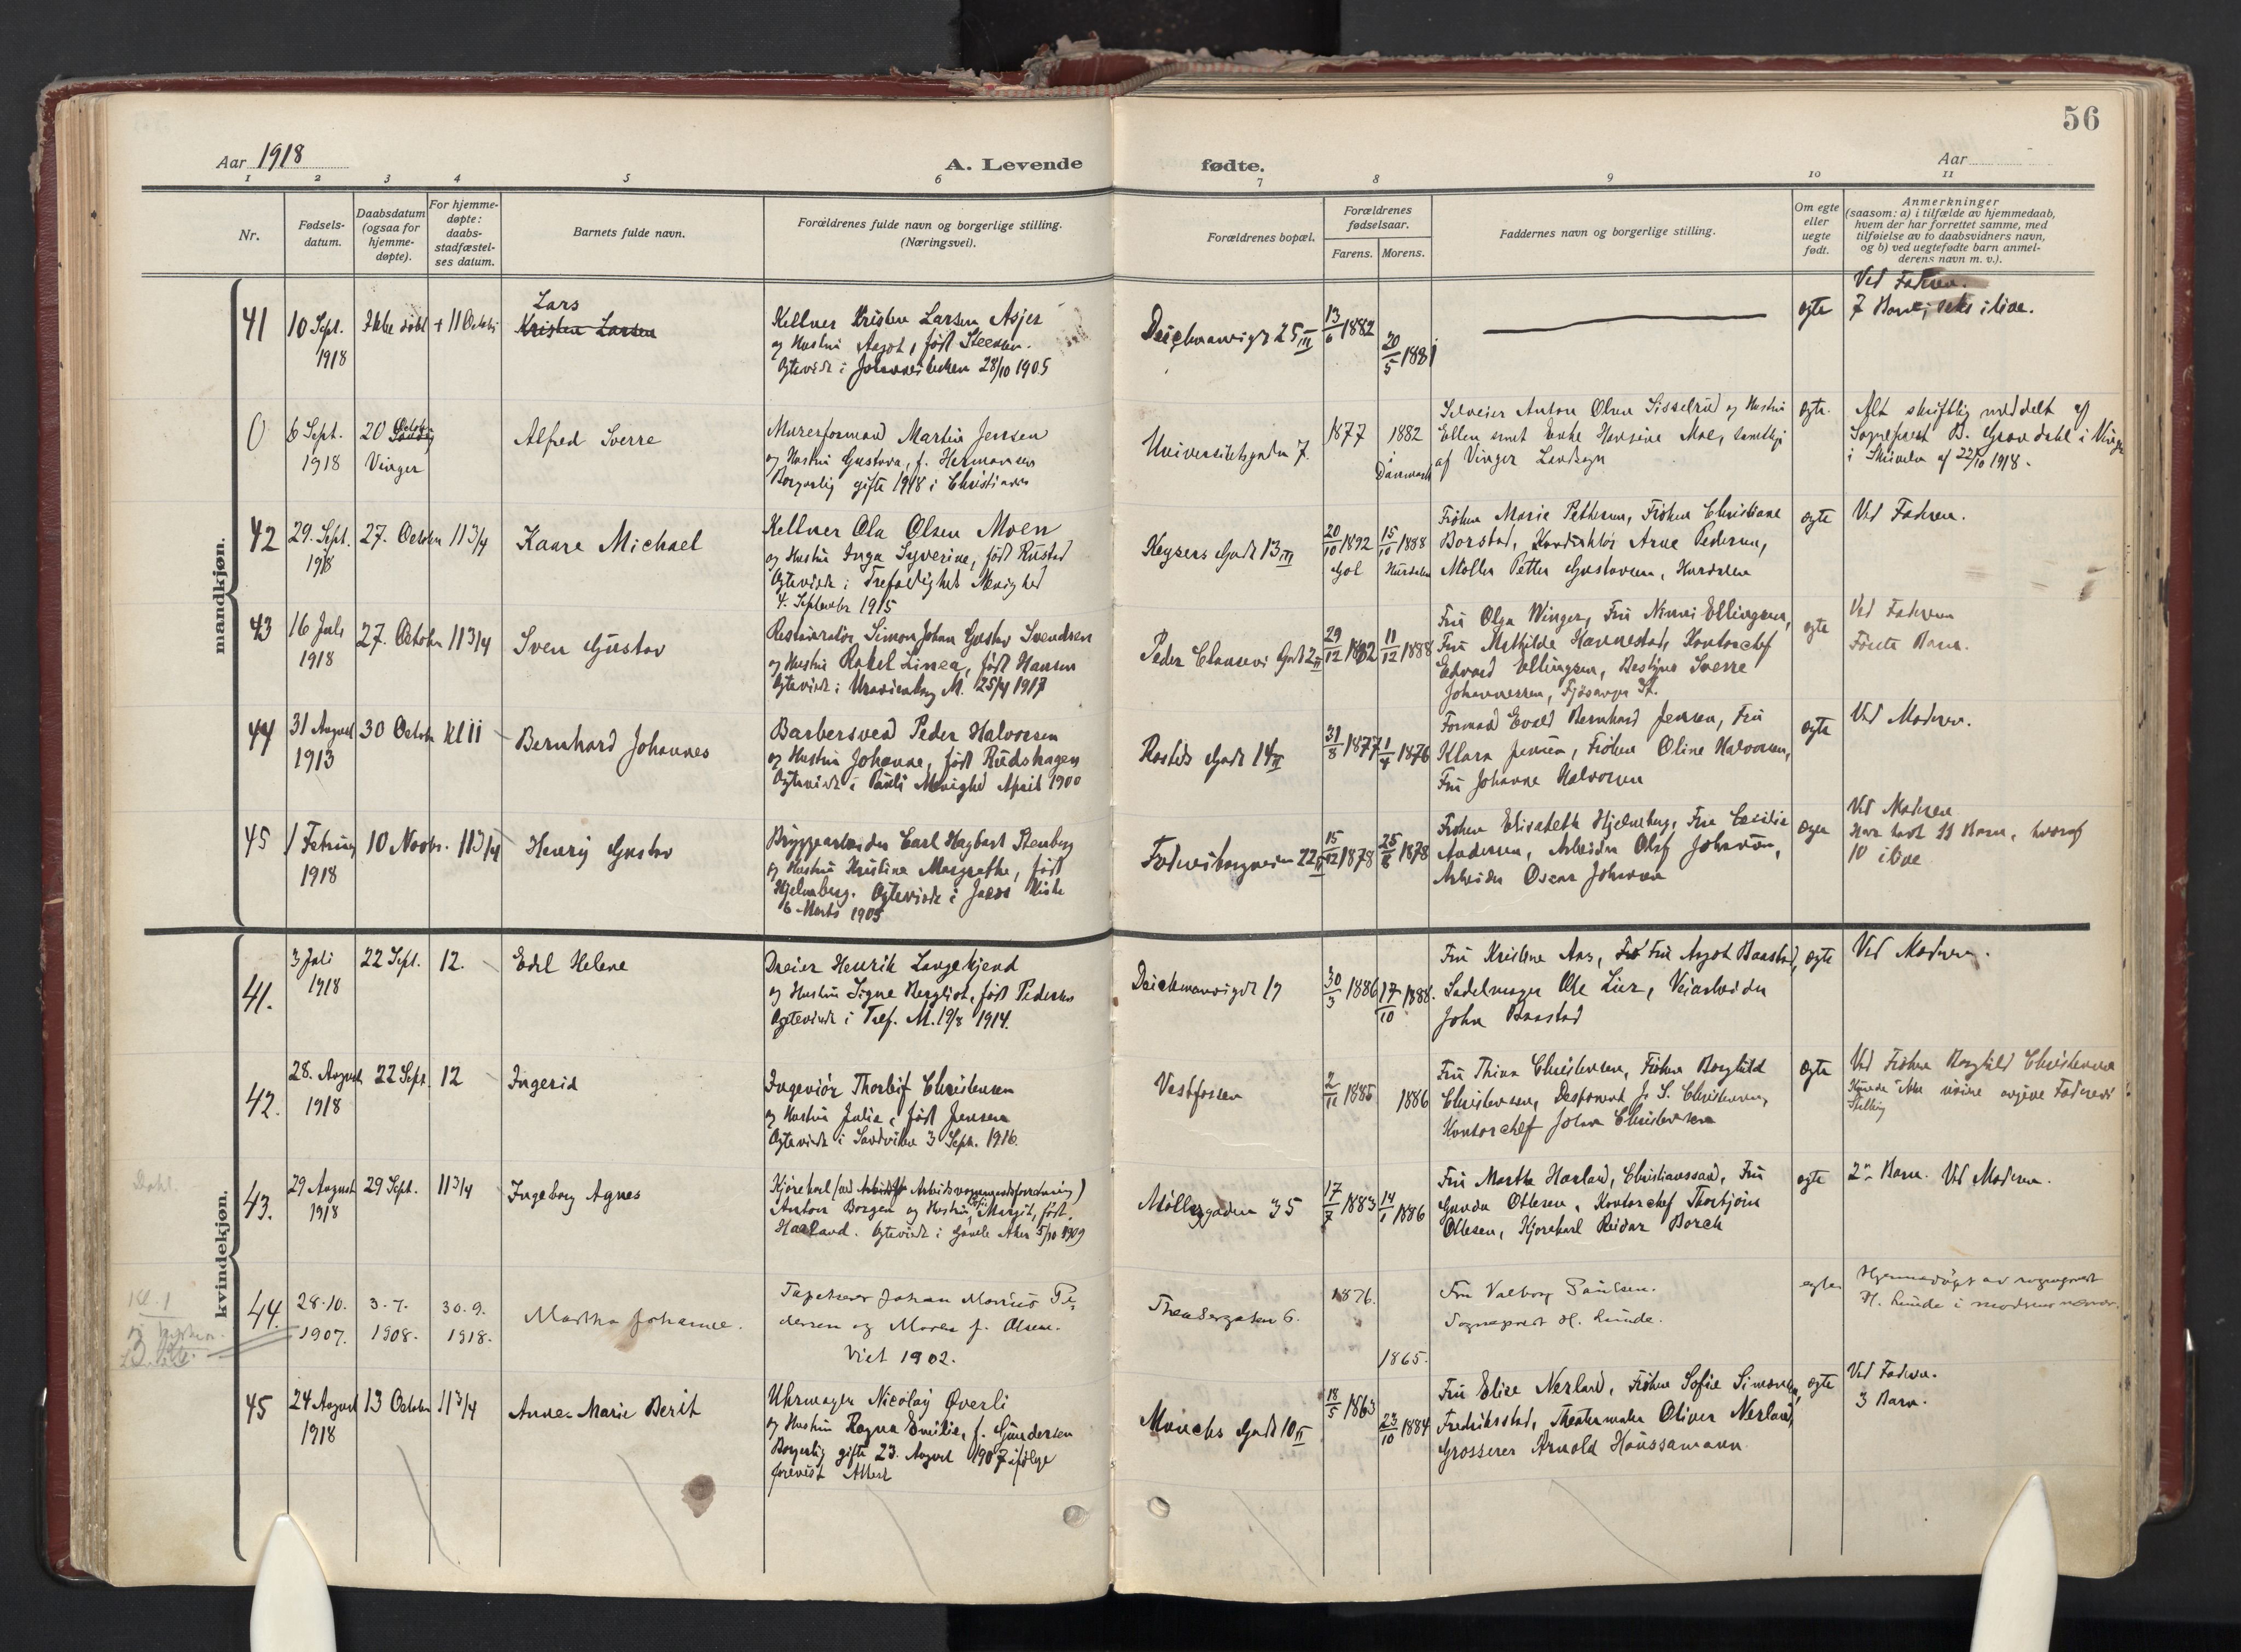 56
Aar 1918
A. Levende
fødte.
Aar
1 2 3 4 5 6 7 8 9 10 11
Nr.
Fødsels-
datum.
Daabsdatum
(ogsaa for
hjemme-
døpte).
For hjemme-
døpte:
daabs-
stadfæstel-
ses datum.
Barnets fulde navn.
Forældrenes fulde navn og borgerlige stilling.
(Næringsvei).
Forældrenes bopæl.
Forældrenes
fødselsaar.
Farens. Morens.
Faddernes navn og borgerlige stilling.
Om egte
eller
uegte
født.
Anmerkninger
(saasom: a) i tilfælde av hjemmedaab,
hvem der har forrettet samme, med
tilføielse av to daabsvidners navn,
og b) ved uegtefødte barn anmel-
derens navn m. v.).
mandkjøn.
41
10 Sept.
1918
Ikke døbt
Lars
Kristen Larsen
Kellner Kristen Larsen Asjer
og Hustru Aagot, født Steensen.
Ogteviede i Johanneskirken 28/10 1905
Deichmansgt 25 III
13/6 1882
20/5 1881
egte
Ved Faderen.
7 Barn, seks ilive.
0
6 Sept.
1918
20 October
Vinger
Alfred Sverre
Murerformand Martin Jensen
og Hustru Gustava, f. Hermansen
Borgerlig gifte 1918 i Christiania
Universitetsgaden 7.
1877
1882
i
Danmark
Selveier Anton Olsen Sisselrud og Hustru
Ellen samt Enke Hansine Moe, samtlige
af Vinger Landsogn
egte.
Alt skriftlig meddelt af
Sogneprest B. Grøndahl i Vinger
i Skrivelse af 22/10 1918.
42
29. Sept.
1918
27. October
11 3/4
Kaare Michael
Kellner Ola Olsen Moen
og Hustru Inga Syverine, født Rustad
Ogteviede i Trefoldighet Menighed
4. September 1915
Keysers Gade 13 III
20/10 1892
Gol
15/10 1888
Hurdalen
Frøken Marie Pettersen, Frøken Christiane
Borstad, Konduktør Arne Pedersen,
Møller Petter Gustavsen, Hurdalen
egte
Ved Faderen.
43
16 Juli
1918
27. October
11 3/4
Sven Gustav
Restauratør Simon Johan Gustav Svendsen
og Hustru Rakel Linea, født Hansen
Ogteviede i Uranienborg M. 25/4 1917
Peder Claussøns Gade 2 II
29/12 1882
11/12 1888
Fru Olga Winger, Fru Nanni Ellingsen,
Fru Mathilde Hannestad, Kontorchef
Edvard Ellingsen, Bestyrer Sverre
Johannessen, Fjøsanger St.
egte
Ved Faderen
Første Barn.
44
31 August
1913
30 October
Kl 11
Bernhard Johannes
Barbersvend Peder Halvorsen
og Hustru Johanne, født Rudshagen
Ogteviede i Pauli Menighed April 1900
Rosteds Gade 14 II
31/8 1877
1/4 1876
Formand Evald Bernhard Jensen, Fru
Klara Jensen, Frøken Oline Halvorsen,
Fru Johanne Halvorsen
egte
Ved Moderen.
45
1 Februar
1918
10 Novbr.
11 3/4
Henry Gustav
Bryggearbeider Carl Hagbart Stenberg
og Hustru Kristine Margrethe, født
Hjelmsberg. Ogteviede i Jacobs Kirke
6 Marts 1905
Fredensborgveien 22 II
15/12 1878
25/8 1878
Frøken Elisabeth Hjelmsberg, Fru Cecilie
Andersen, Arbeider Olaf Johansen,
Arbeider Oscar Johansen
egte
Ved Moderen
Har havt 11 Barn, hvoraf
10 ilive
kvindekjøn.
41.
3 Juli
1918
22 Sept.
12.
Edel Helene
Dreier Henrik Langekjend
og Hustru Signe Bergliot, født Pedersen
Ogteviede i Tref. M. 19/8 1914.
Deichmansgt 19
30/3 1886
17/10 1888.
Fru Kristine Aas, Fru Aagot Baastad,
Sadelmager Ole Lier, Veiarbeider
John Baastad
egte
Ved Moderen.
42.
28. August
1918
22 Sept.
12
Ingerid
Ingeniør Thorleif Christensen
og Hustru Julie, født Jensen
Ogteviede i Sandviken 3 Sept. 1916.
Vestfossen
2/11 1885
1886
Fru Thina Christensen, Frøken Borghild
Christensen, Disponent J. S. Christensen,
Kontorchef Johan Christensen
egte
Ved Frøken Borghild Christensen
Kunde ikke nøie angive Faderens
Stilling
43.
29 August
1918
29 Sept.
11 3/4
Ingeborg Agnes
Kjørekarl (ved Arbeidsvognmandsforretning)
Anton Borgen og Hustru Margit, født
Haaland. Ogteviede i Gamle Aker 5/10 1909
Møllergaden 35
17/7 1883
14/1 1886
Fru Marthe Haaland, Christianssand, Fru
Gunda Ottesen, Kontorchef Thorbjørn
Ottesen, Kjørekarl Reidar Borch
egte
2 Barn. Ved Moderen.
Dahl.
Kl. 1
44.
28.10.
1907.
3.7.
1908.
30.9.
1918.
Martha Johanne.
Tapetserer Johan Marius Pe-
dersen og Maren f. Olsen.
Viet 1902.
Theatergaten 6.
1876.
1865.
Fru Valborg Paulsen.
Sogneprest H. Lunde.
egte
Hjemmedøpt av sogneprest
H. Lunde i moderens nærvær.
45
24 August
1918
13 October
11 3/4
Anne-Marie Berit
Uhrmager Nicolay Øverli
og Hustru Ragna Emilie, f. Gundersen
Borgerlig gifte 23. August 1907 ifølge
forevist Attest
Munchs Gade 10 II
18/5 1863
23/10 1884
Fru Elise Nerland, Frøken Sofie Simonsen,
Fredriksstad, Theatermaler Oliver Nerland,
Grosserer Arnold Haussamann.
egte
Ved Faderen.
3 Barn.